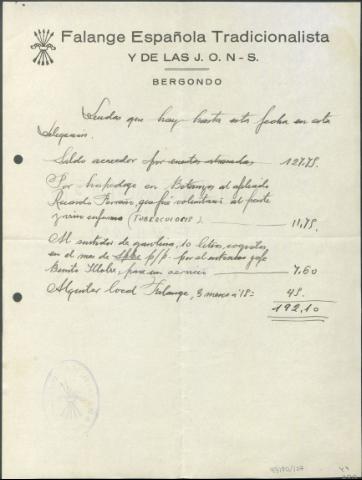 Falange Española Tradicionalista
Y DE LAS J. O. N - S.
BERGONDO
Deudas que hay hasta esta fecha en esta
Delegación.
Saldo acreedor por cuentas atrasadas 127,75.
Por hospedage en Betanzos al afiliado
Ricardo que fué voluntario al frente
y vino enfermo (TUBERCULOSIS) 11,75.
Al surtidor de gasolina, 10 litros, cogidos
en el mes de p/p. por el gefe
Benito para un servicio 7,60
Alquiler local Falange, 3 meses a 15 = 45.
192,10